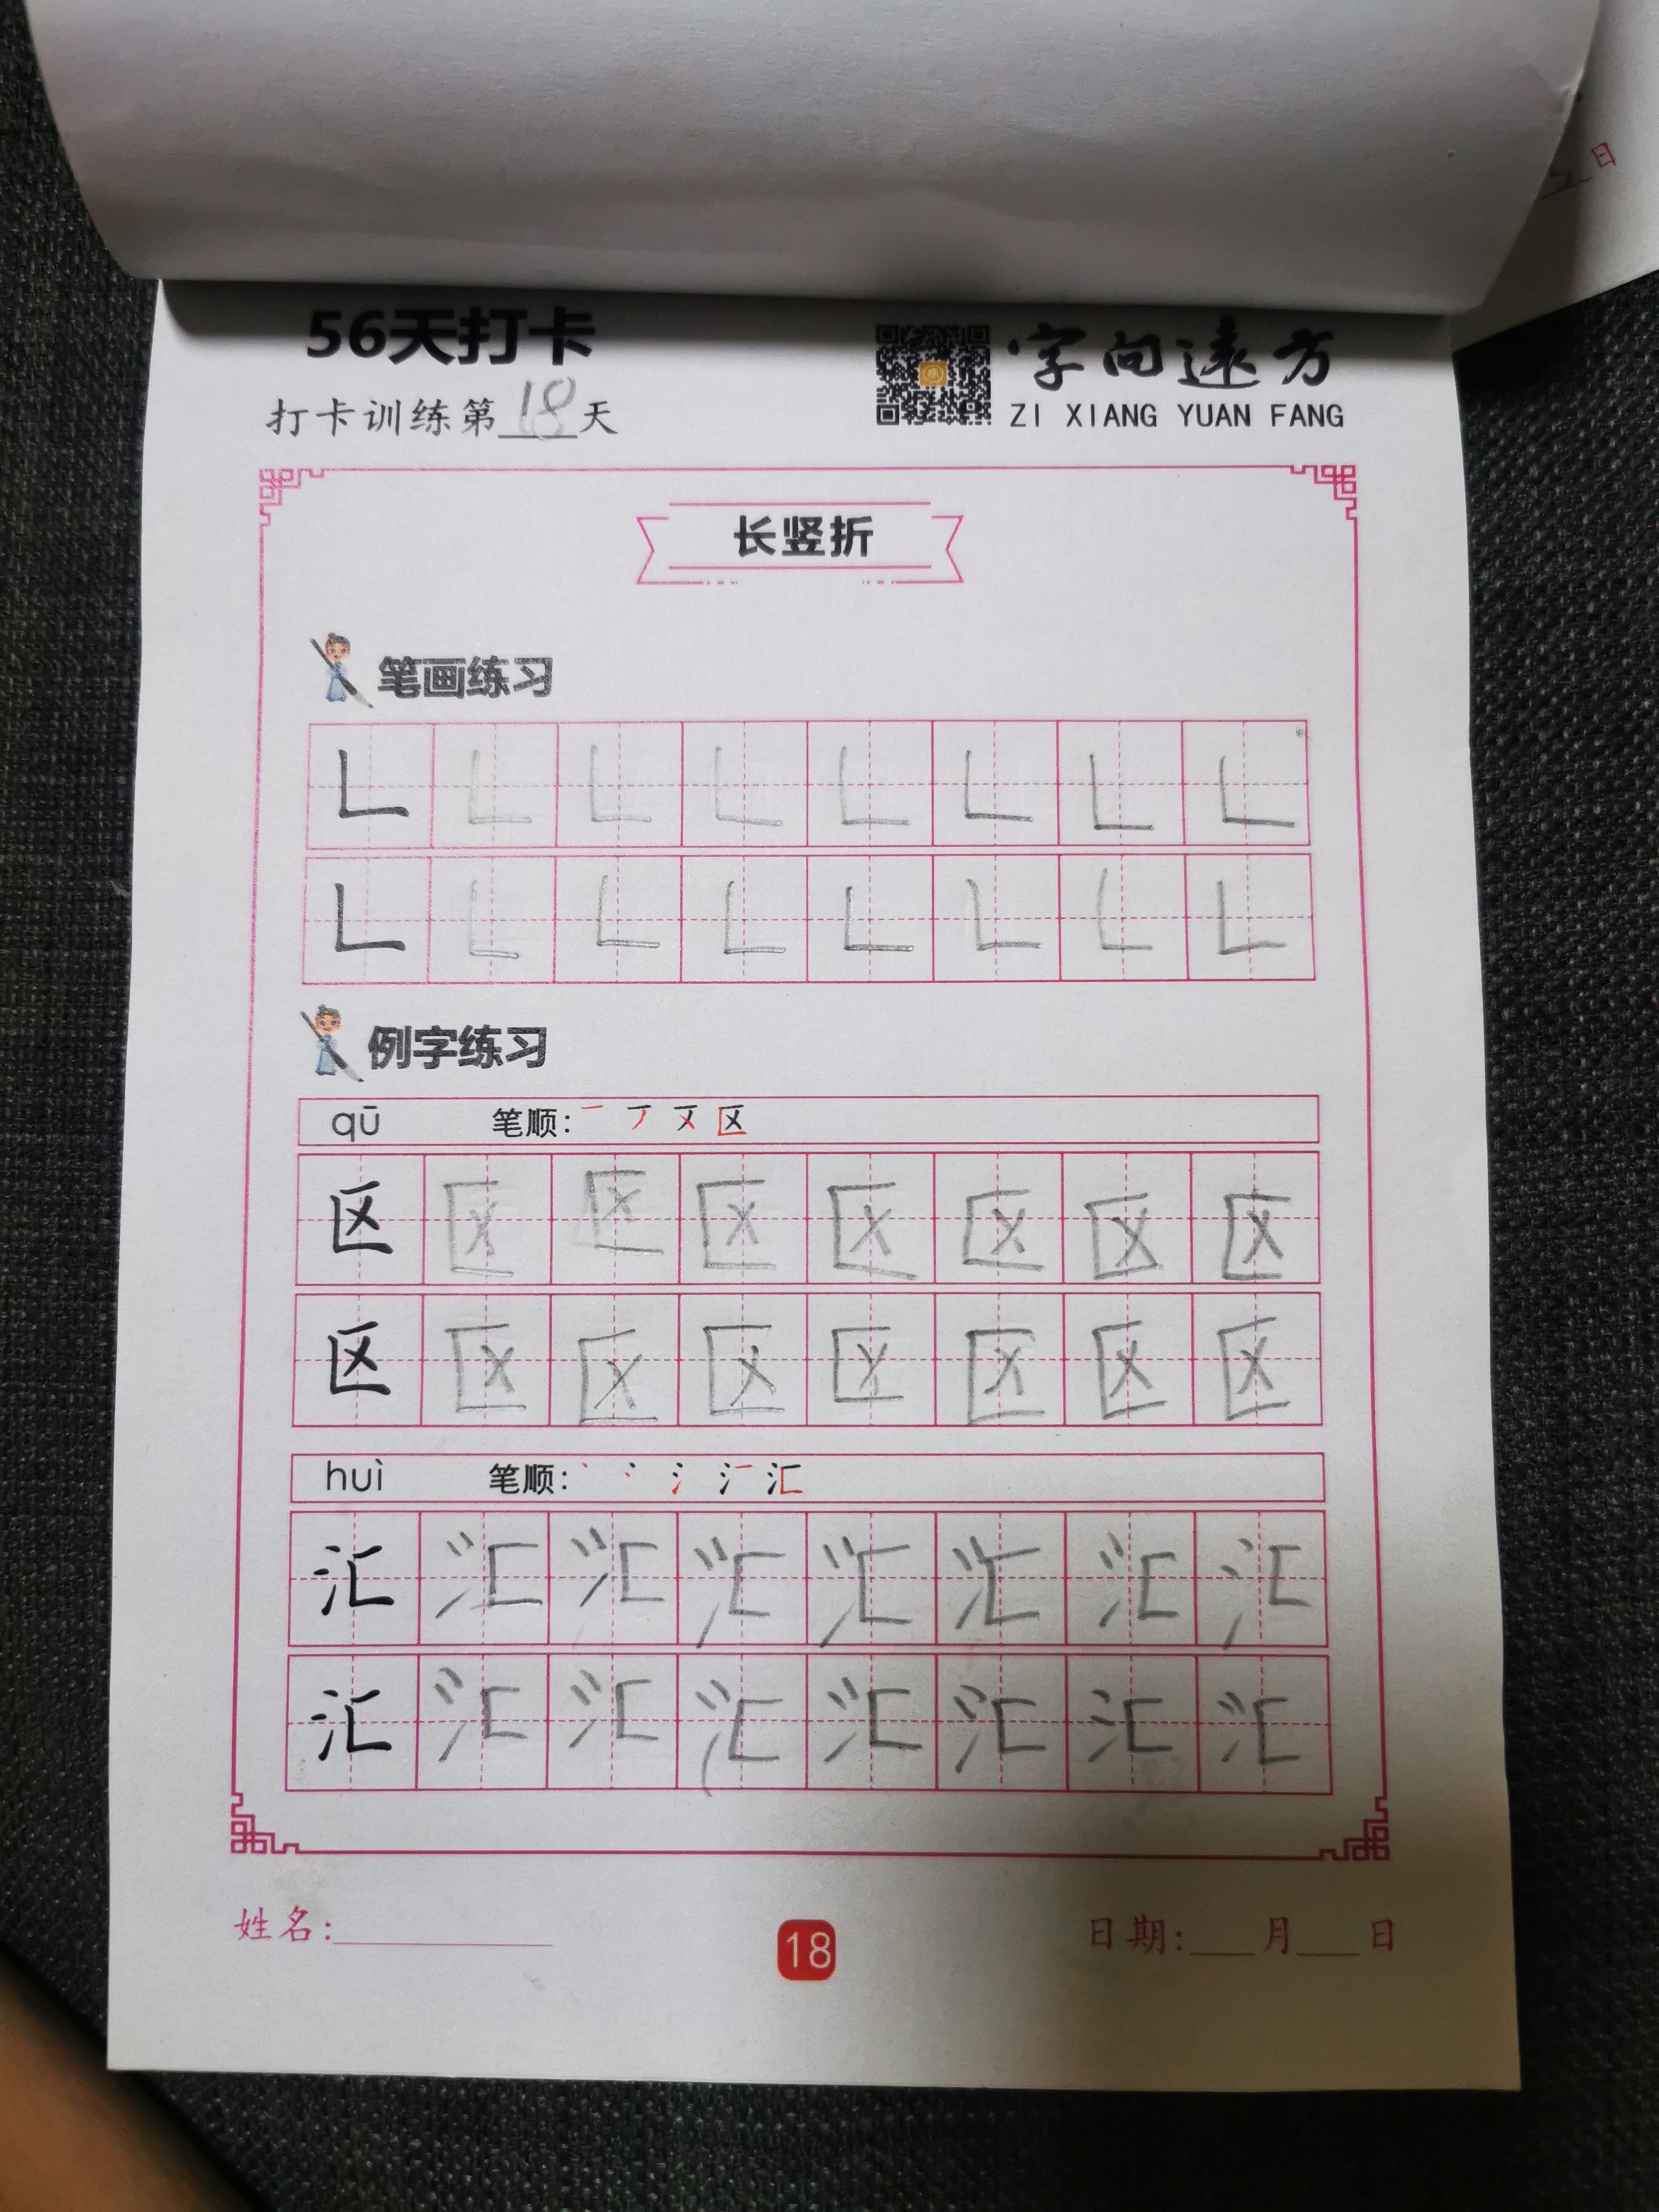 日
56天打卡
字向远方
打卡训练第18天
ZI XIANG YUAN FANG
长竖折
笔画练习
𠃊 𠃊 𠃊 𠃊 𠃊 𠃊 𠃊 𠃊
𠃊 𠃊 𠃊 𠃊 𠃊 𠃊 𠃊 𠃊
例字练习
qū 笔顺: 一 丆 区
区 区 区 区 区 区 区 区
区 区 区 区 区 区 区 区
huì 笔顺: 丶 冫 氵 汇
汇 汇 汇 汇 汇 汇 汇 汇
汇 汇 汇 汇 汇 汇 汇 汇
姓名:
18
日期: 月 日